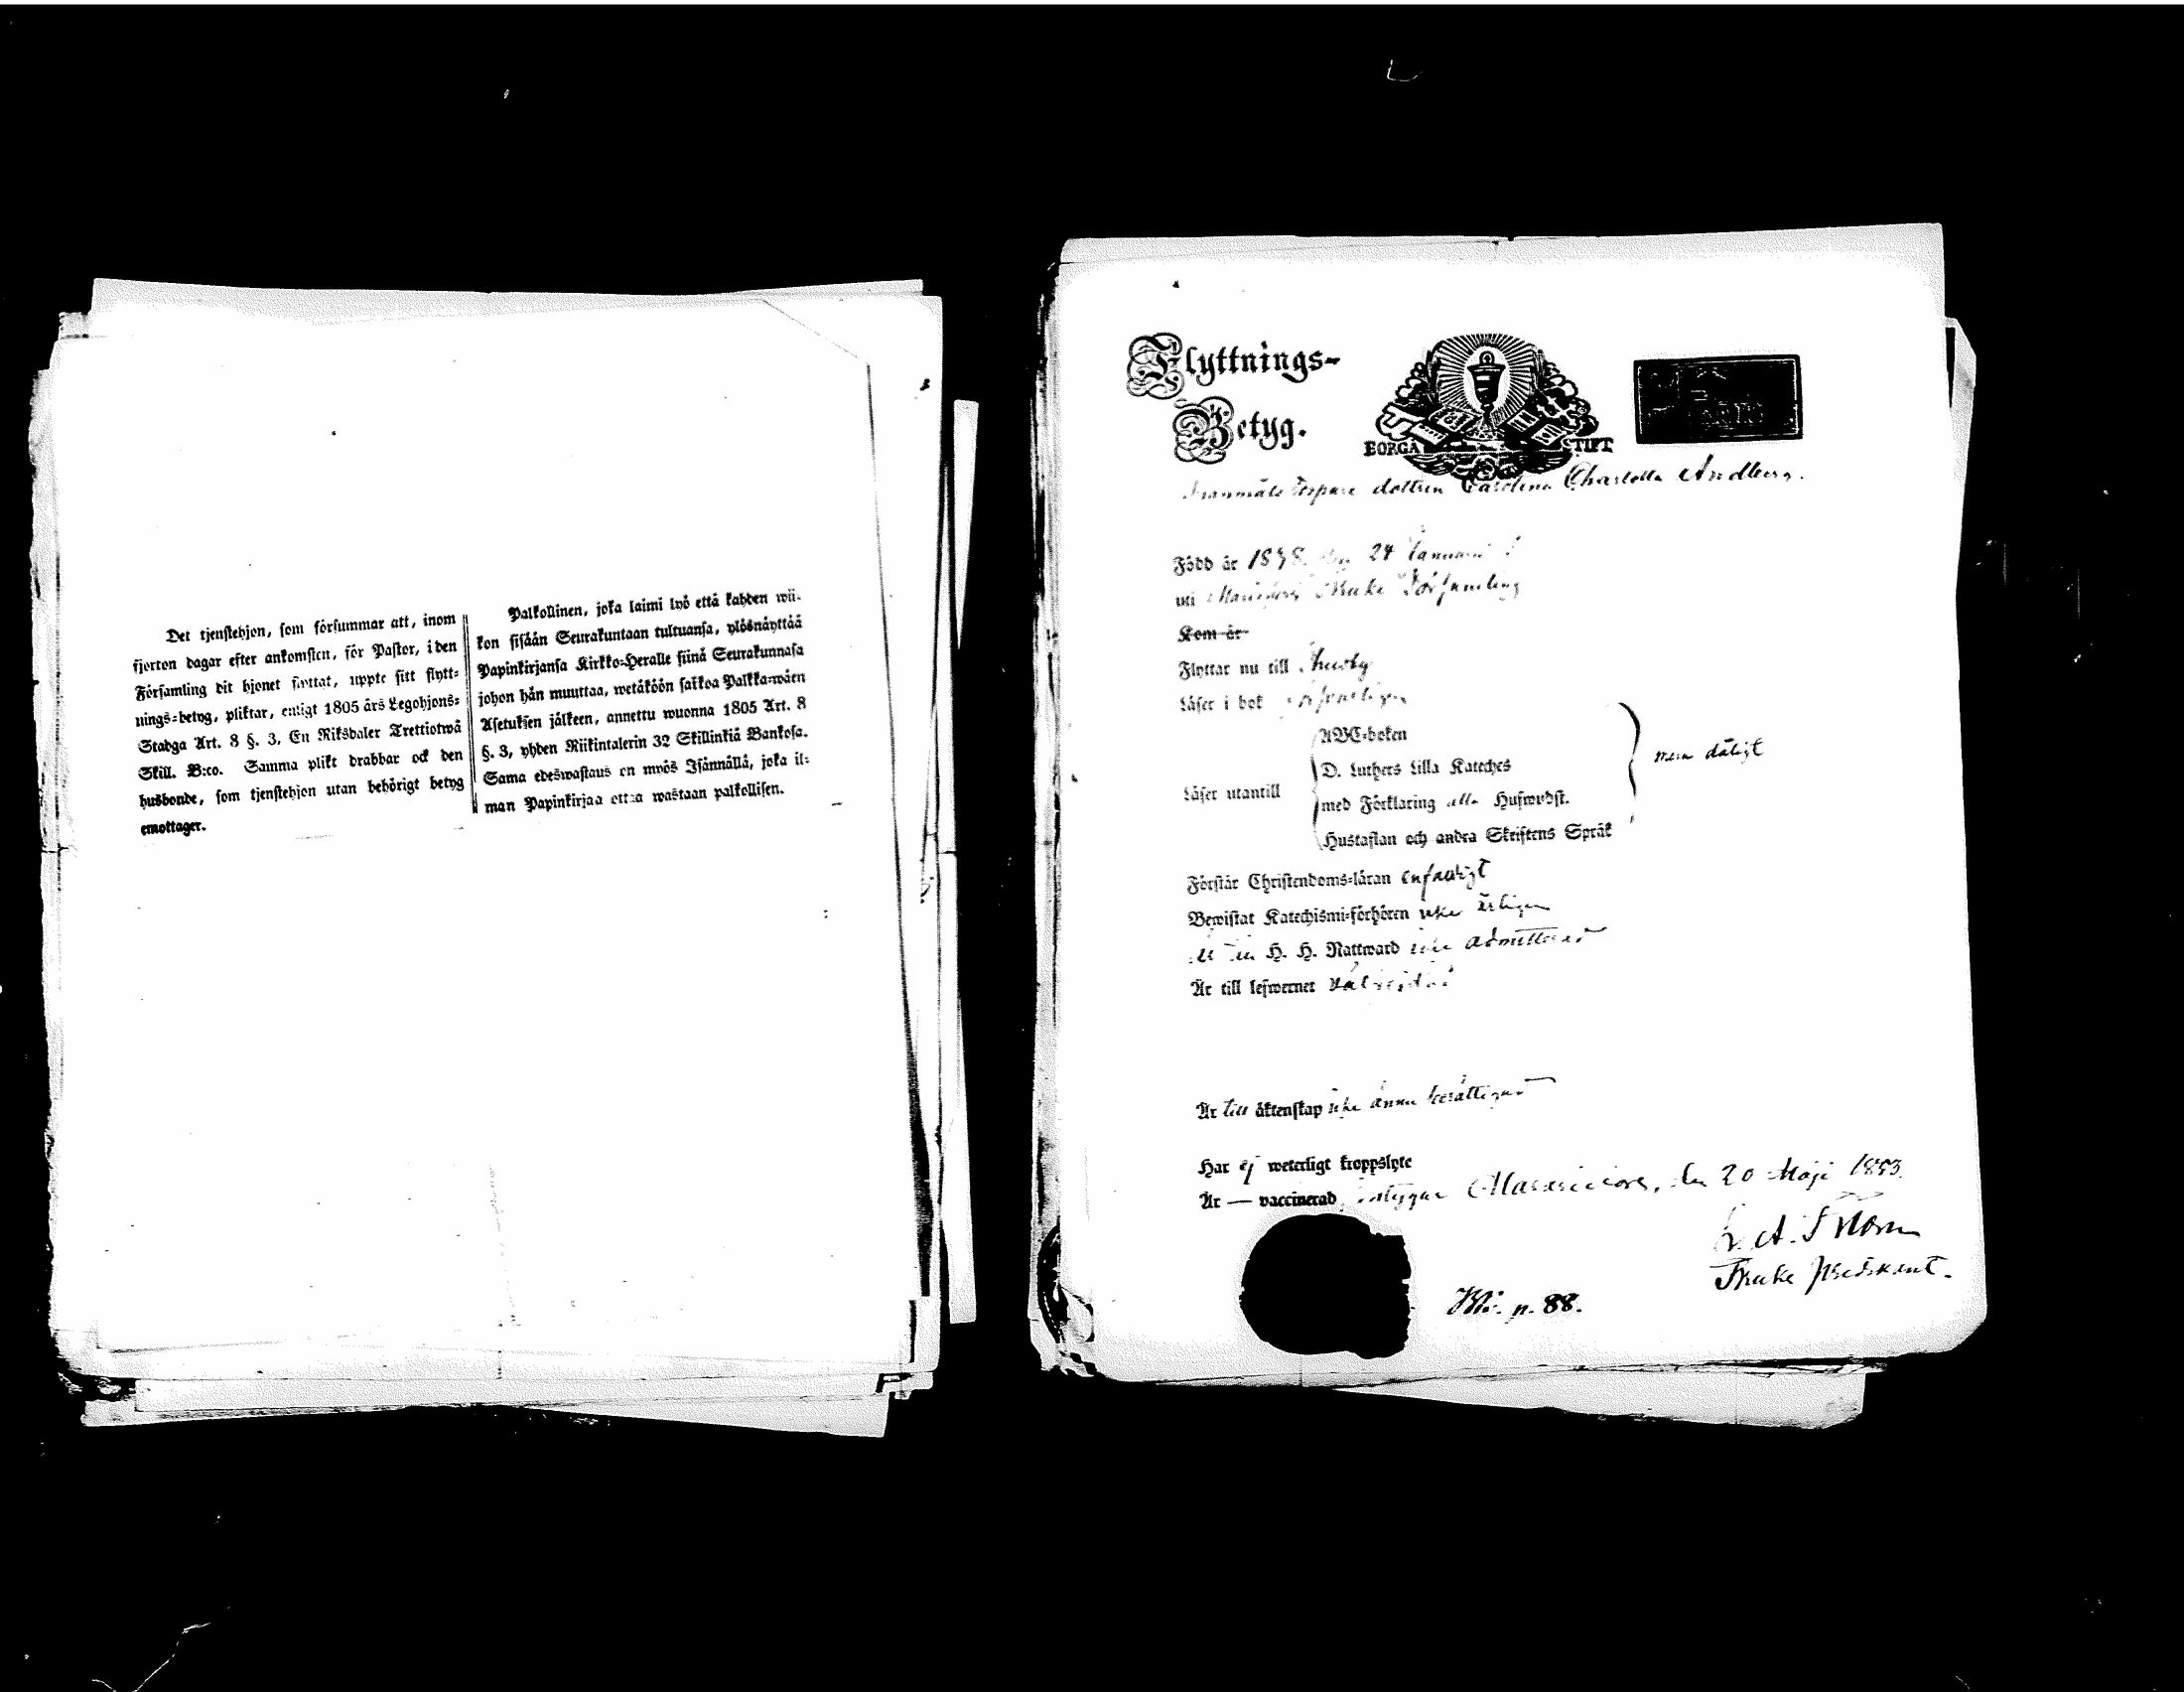 Det tjenstehjon, som försummar att, inom
fjorton dagar efter ankomsten, för Pastor, i den
Församling dit hjonet flyttat, uppte sitt flytt-
nings-betyg, pliktar, enligt 1805 års Legohjons-
Stadga Art. 8 §. 3, En Riksdaler Trettiotwå
Skill. B:co. Samma plikt drabbar ock den
husbonde, som tjenstehjon utan behörigt betyg
emottager.
Palkollinen, joka laimi lyö että kahden wii-
kon sisään Seurakuntaan tultuansa, ylösnäyttää
Papinkirjansa Kirkko-Heralle siinä Seurakunnasa
johon hän muuttaa, wetäköön sakkoa Palkka-wäen
Asetuksen jälkeen, annettu wuonna 1805 Art. 8
§. 3, yhden Riikintalerin 32 Skillinkiä Bankosa.
Sama edeswastaus on myös Isännällä, joka il-
man Papinkirjaa ottaa wastaan palkollisen.
Flyttnings-
Betyg.
BORGA STIFT
dottren Carolina Charlotta Andberg.
Född år 1838. den 24 Januari
uti Bruks Församling
Kom år
Flyttar nu till
Läser i bok
Läser utantill
ABC-boken
D. Luthers Lilla Kateches
med Förklaring alla Hufwudst.
Hustaflan och andra Skriftens Språk
men dåligt
Förstår Christendoms-läran enfaldigt
Bewistat Katechismi-förhören icke årligen
H. H. Nattward icke admitterad
Är till lefwernet
Är till äktenskap icke ännu berättigad
Har ej weterligt kroppslyte
Är — vaccinerad, intygar den 20 Maji 1853.
Bruks predikant.
p. 88.